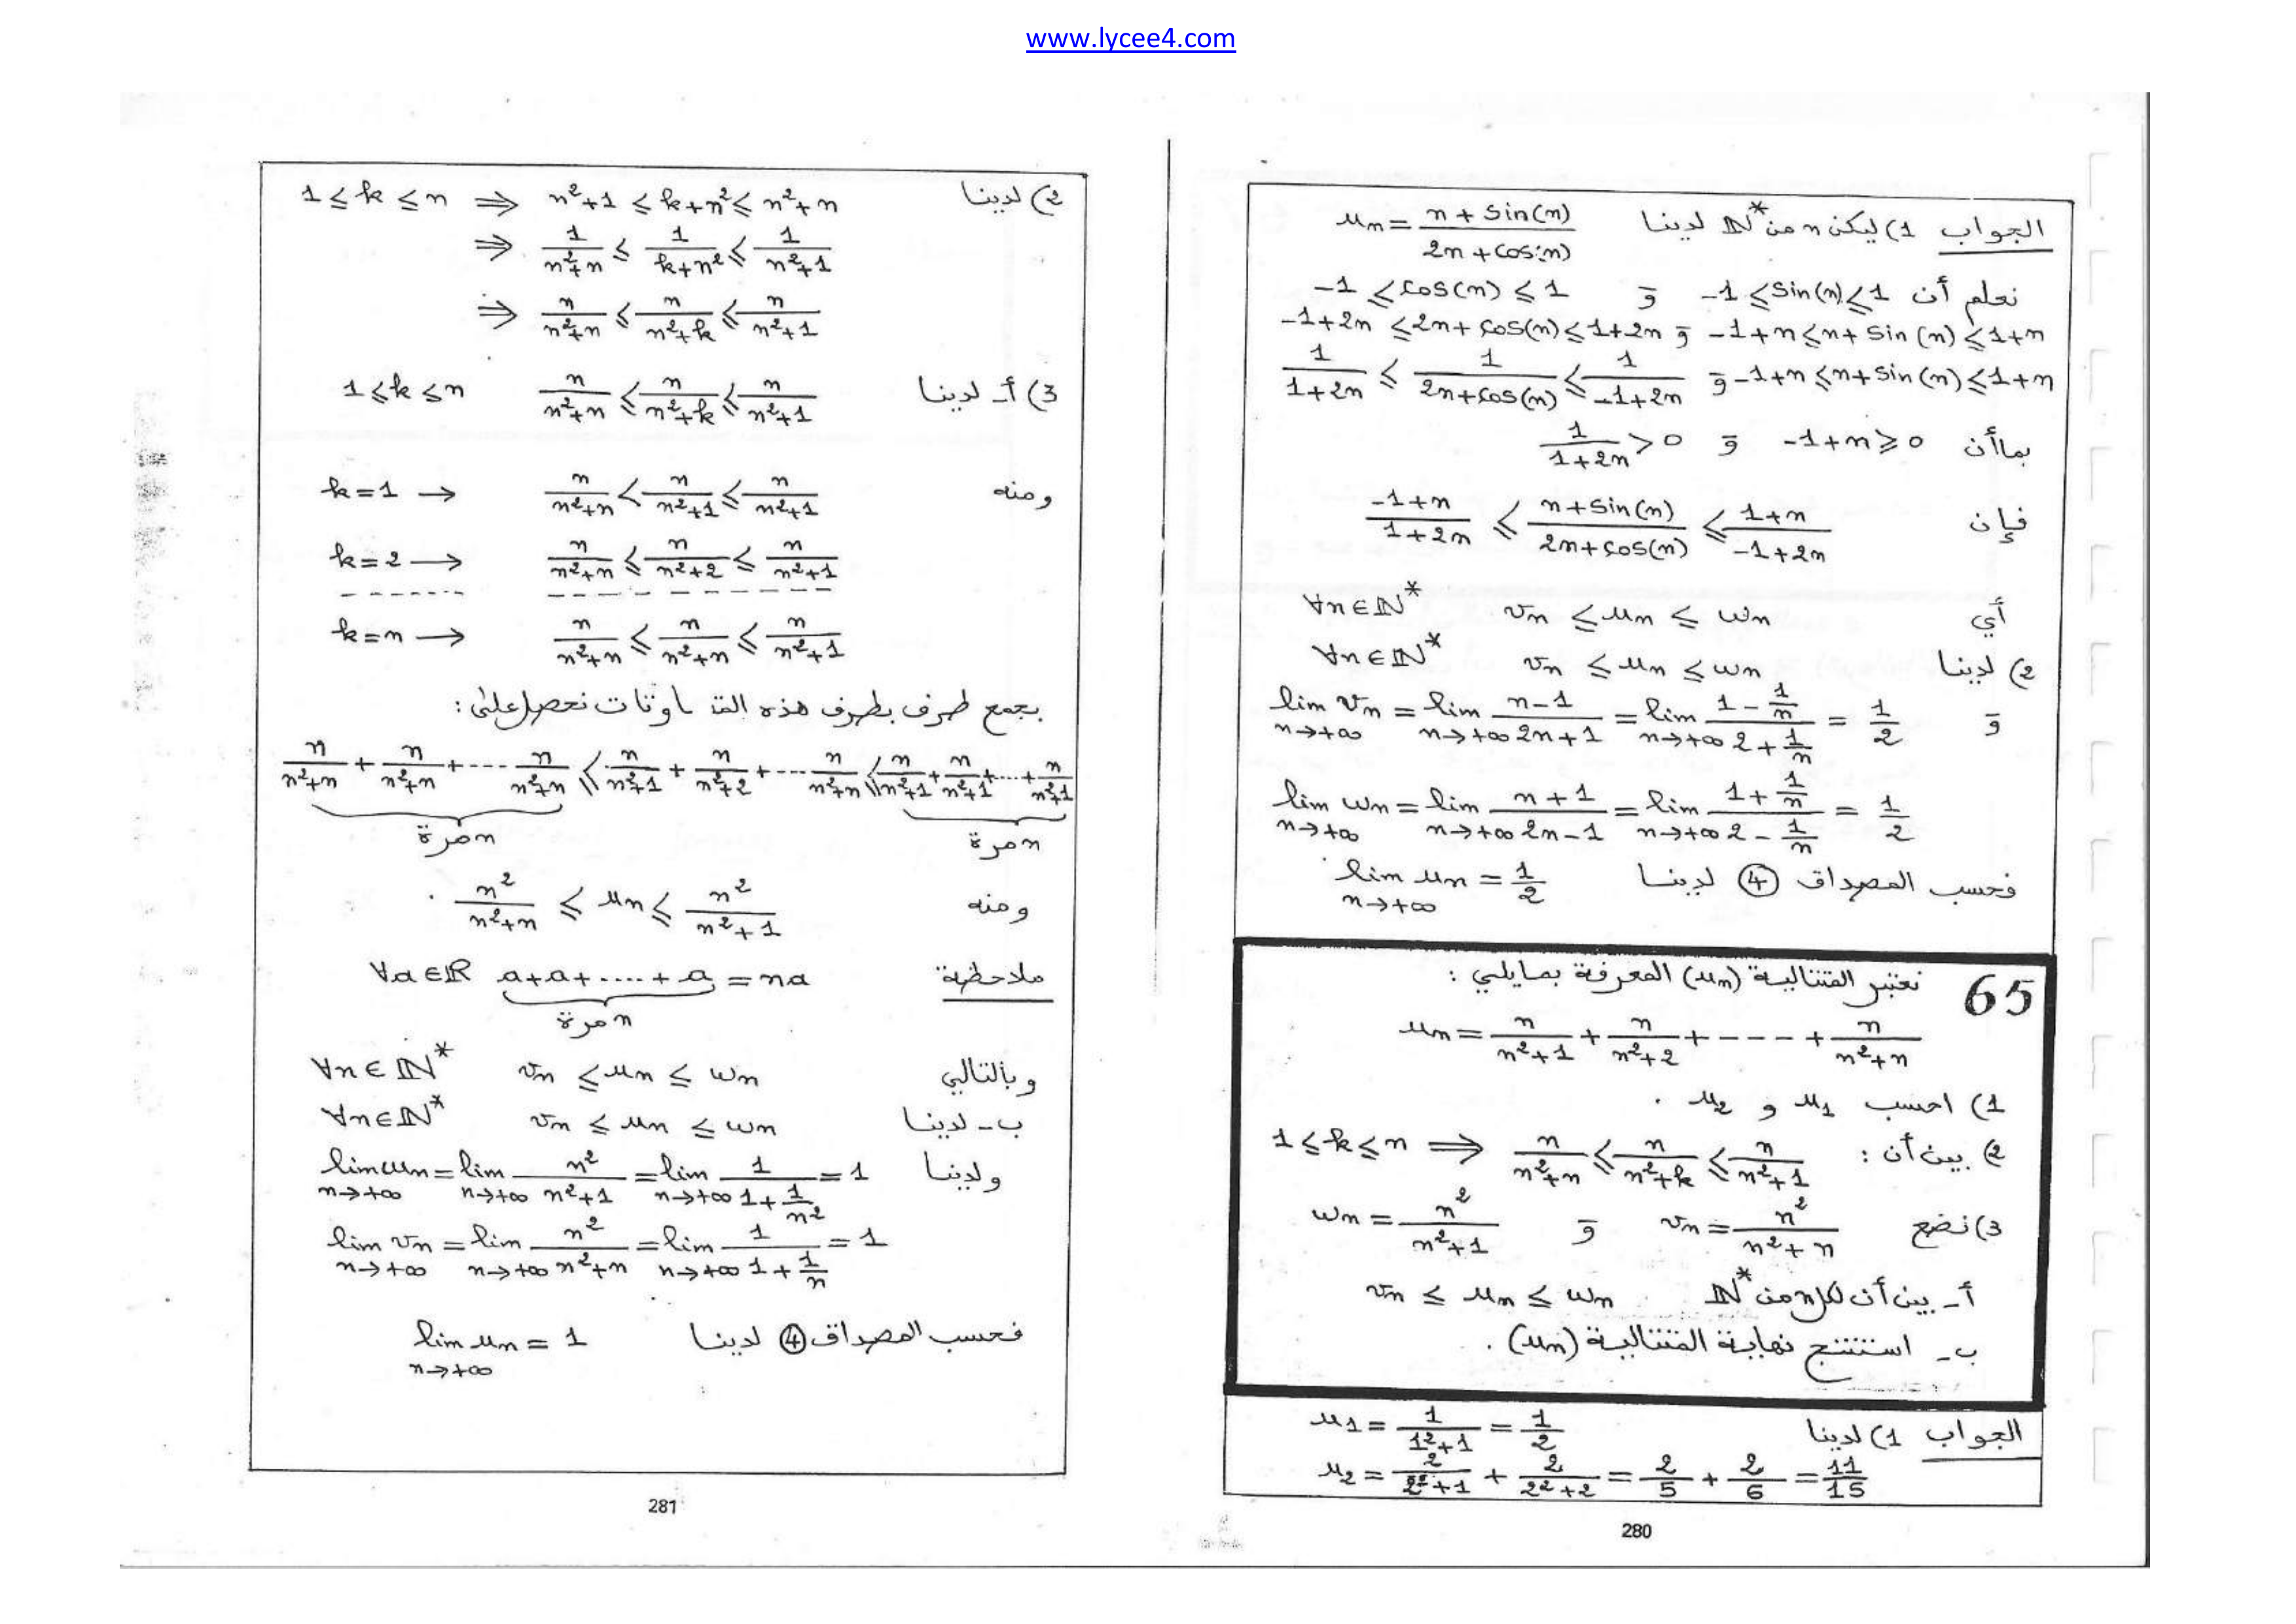 www.lycee4.com
الجواب 1) ليكن n من ℕ* لدينا uₙ = (n + sin(n)) / (2n + cos(n))
نعلم أن -1 ≤ sin(n) ≤ 1 و -1 ≤ cos(n) ≤ 1
-1+n ≤ n+sin(n) ≤ 1+n و -1+2n ≤ 2n+cos(n) ≤ 1+2n
-1+n ≤ n+sin(n) ≤ 1+n و 1/(1+2n) ≤ 1/(2n+cos(n)) ≤ 1/(-1+2n)
بما أن -1+n ≥ 0 و 1/(1+2n) > 0
فإن (-1+n)/(1+2n) ≤ (n+sin(n))/(2n+cos(n)) ≤ (1+n)/(-1+2n)
أي vₙ ≤ uₙ ≤ wₙ ∀n∈ℕ*
2) لدينا vₙ ≤ uₙ ≤ wₙ ∀n∈ℕ*
و lim vₙ (n→+∞) = lim (n→+∞) (n-1)/(2n+1) = lim (n→+∞) (1 - 1/n)/(2 + 1/n) = 1/2
lim wₙ (n→+∞) = lim (n→+∞) (n+1)/(2n-1) = lim (n→+∞) (1 + 1/n)/(2 - 1/n) = 1/2
فحسب المصداق ④ لدينا lim uₙ (n→+∞) = 1/2
65 نعتبر المتتالية (uₙ) المعرفة بمايلي :
uₙ = n/(n²+1) + n/(n²+2) + --- + n/(n²+n)
1) احسب u₁ و u₂ .
2) بين أن : 1 ≤ k ≤ n ⟹ n/(n²+n) ≤ n/(n²+k) ≤ n/(n²+1)
3) نضع vₙ = n²/(n²+n) و wₙ = n²/(n²+1)
أ- بين أن لكل n من ℕ* vₙ ≤ uₙ ≤ wₙ
ب- استنتج نهاية المتتالية (uₙ) .
الجواب 1) لدينا u₁ = 1/(1²+1) = 1/2
u₂ = 2/(2²+1) + 2/(2²+2) = 2/5 + 2/6 = 11/15
280
2) لدينا 1 ≤ k ≤ n ⟹ n²+1 ≤ k+n² ≤ n²+n
⟹ 1/(n²+n) ≤ 1/(k+n²) ≤ 1/(n²+1)
⟹ n/(n²+n) ≤ n/(n²+k) ≤ n/(n²+1)
3) أ- لدينا n/(n²+n) ≤ n/(n²+k) ≤ n/(n²+1) 1 ≤ k ≤ n
ومنه k=1 → n/(n²+n) < n/(n²+1) ≤ n/(n²+1)
k=2 → n/(n²+n) ≤ n/(n²+2) ≤ n/(n²+1)
------ ---------
k=n → n/(n²+n) ≤ n/(n²+n) ≤ n/(n²+1)
بجمع طرف بطرف هذه المتفاوتات نحصل على :
n/(n²+n) + n/(n²+n) + --- n/(n²+n) ≤ n/(n²+1) + n/(n²+2) + --- n/(n²+n) ≤ n/(n²+1) + n/(n²+1) + ... + n/(n²+1)
n مرة n مرة
ومنه n²/(n²+n) ≤ uₙ ≤ n²/(n²+1) .
ملاحظة ∀a∈ℝ a+a+....+a = na
n مرة
وبالتالي vₙ ≤ uₙ ≤ wₙ ∀n∈ℕ*
ب- لدينا vₙ ≤ uₙ ≤ wₙ ∀n∈ℕ*
ولدينا lim wₙ (n→+∞) = lim (n→+∞) n²/(n²+1) = lim (n→+∞) 1/(1 + 1/n²) = 1
lim vₙ (n→+∞) = lim (n→+∞) n²/(n²+n) = lim (n→+∞) 1/(1 + 1/n) = 1
فحسب المصداق ④ لدينا lim uₙ (n→+∞) = 1
281